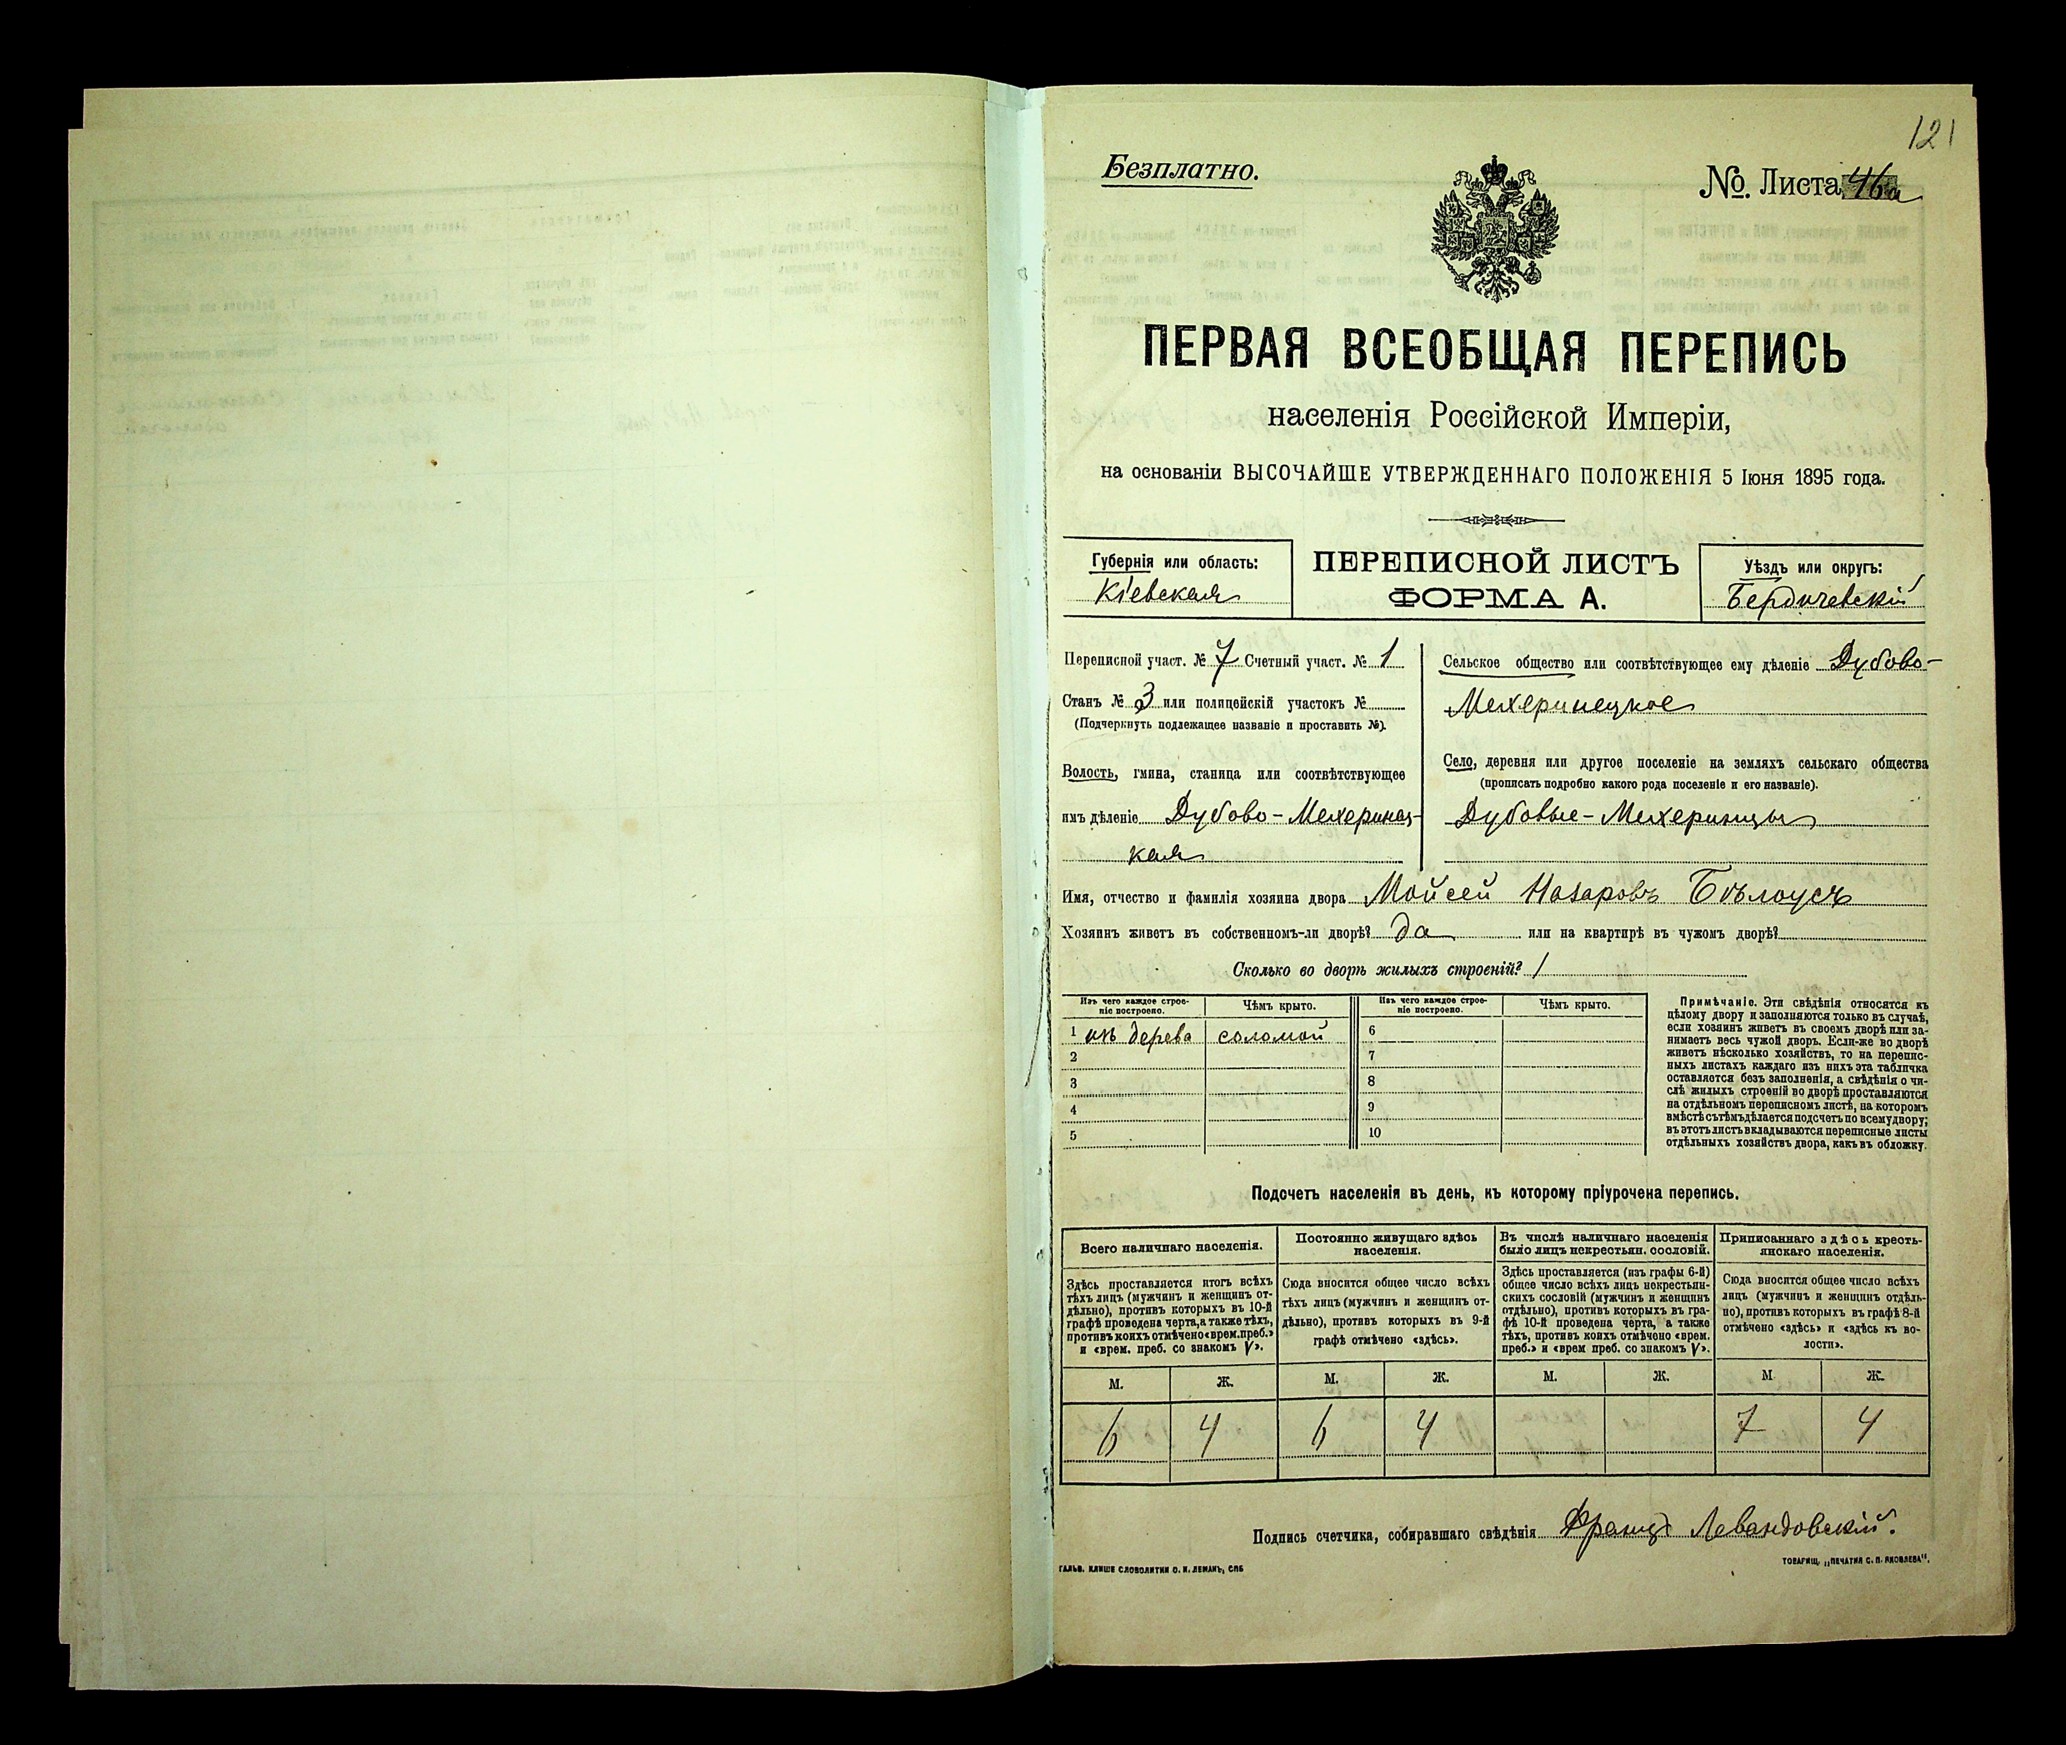 121
Безплатно.
№. Листа 46а
ПЕРВАЯ ВСЕОБЩАЯ ПЕРЕПИСЬ
населенія Россійской Имперіи,
на основаніи ВЫСОЧАЙШЕ УТВЕРЖДЕННАГО ПОЛОЖЕНІЯ 5 Іюня 1895 года.
Губернія или область:
Кіевская
ПЕРЕПИСНОЙ ЛИСТЪ
ФОРМА А.
Уѣздъ или округъ:
Бердичевскій
Переписной участ. № 7 Счетный участ. № 1
Станъ № 3 или полицейскій участокъ №
(Подчеркнуть подлежащее названіе и проставить №).
Волость, гмина, станица или соотвѣтствующее
имъ дѣленіе Дубово-Мехеринец-
кая
Сельское общество или соотвѣтствующее ему дѣленіе Дубово-
Мехеринецкое
Село, деревня или другое поселеніе на земляхъ сельскаго общества
(прописать подробно какого рода поселеніе и его названіе).
Дубовые-Мехеринцы
Имя, отчество и фамилія хозяина двора Мойсей Назаровъ Бѣлоусъ
Хозяинъ живетъ въ собственномъ-ли дворѣ? да или на квартирѣ въ чужомъ дворѣ?
Сколько во дворѣ жилыхъ строеній? 1
Изъ чего каждое строе-
ніе построено.
Чѣмъ крыто.
Изъ чего каждое строе-
ніе построено.
Чѣмъ крыто.
1 изъ дерева соломой 6
2 7
3 8
4 9
5 10
Примѣчаніе. Эти свѣдѣнія относятся къ
цѣлому двору и заполняются только въ случаѣ,
если хозяинъ живетъ въ своемъ дворѣ или за-
нимаетъ весь чужой дворъ. Если-же во дворѣ
живетъ нѣсколько хозяйствъ, то на перепис-
ныхъ листахъ каждаго изъ нихъ эта табличка
оставляется безъ заполненія, а свѣдѣнія о чи-
слѣ жилыхъ строеній во дворѣ проставляются
на отдѣльномъ переписномъ листѣ, на которомъ
вмѣстѣ съ тѣмъ дѣлается подсчетъ по всему двору;
въ этотъ листъ вкладываются переписные листы
отдѣльныхъ хозяйствъ двора, какъ въ обложку.
Подсчетъ населенія въ день, къ которому пріурочена перепись.
Всего наличнаго населенія.
Здѣсь проставляется итогъ всѣхъ
тѣхъ лицъ (мужчинъ и женщинъ от-
дѣльно), противъ которыхъ въ 10-й
графѣ проведена черта, а также тѣхъ,
противъ коихъ отмѣчено «врем. преб.»
и «врем. преб. со знакомъ V».
Постоянно живущаго здѣсь
населенія.
Сюда вносится общее число всѣхъ
тѣхъ лицъ (мужчинъ и женщинъ от-
дѣльно), противъ которыхъ въ 9-й
графѣ отмѣчено «здѣсь».
Въ числѣ наличнаго населенія
было лицъ некрестьян. сословій.
Здѣсь проставляется (изъ графы 6-й)
общее число всѣхъ лицъ некрестьян-
скихъ сословій (мужчинъ и женщинъ
отдѣльно), противъ которыхъ въ гра-
фѣ 10-й проведена черта, а также
тѣхъ, противъ коихъ отмѣчено «врем.
преб.» и «врем преб. со знакомъ V».
Приписаннаго здѣсь кресть-
янскаго населенія.
Сюда вносится общее число всѣхъ
лицъ (мужчинъ и женщинъ отдѣль-
но), противъ которыхъ въ графѣ 8-й
отмѣчено «здѣсь» и «здѣсь къ во-
лости».
М. Ж. М. Ж. М. Ж. М Ж.
6 4 6 4 7 4
Подпись счетчика, собиравшаго свѣдѣнія Францъ Левандовскій.
ГАЛЬВ. КЛИШЕ СЛОВОЛИТНИ О. И. ЛЕМАНЪ, СПБ
ТОВАРИЩ. „ПЕЧАТНЯ С. П. ЯКОВЛЕВА".